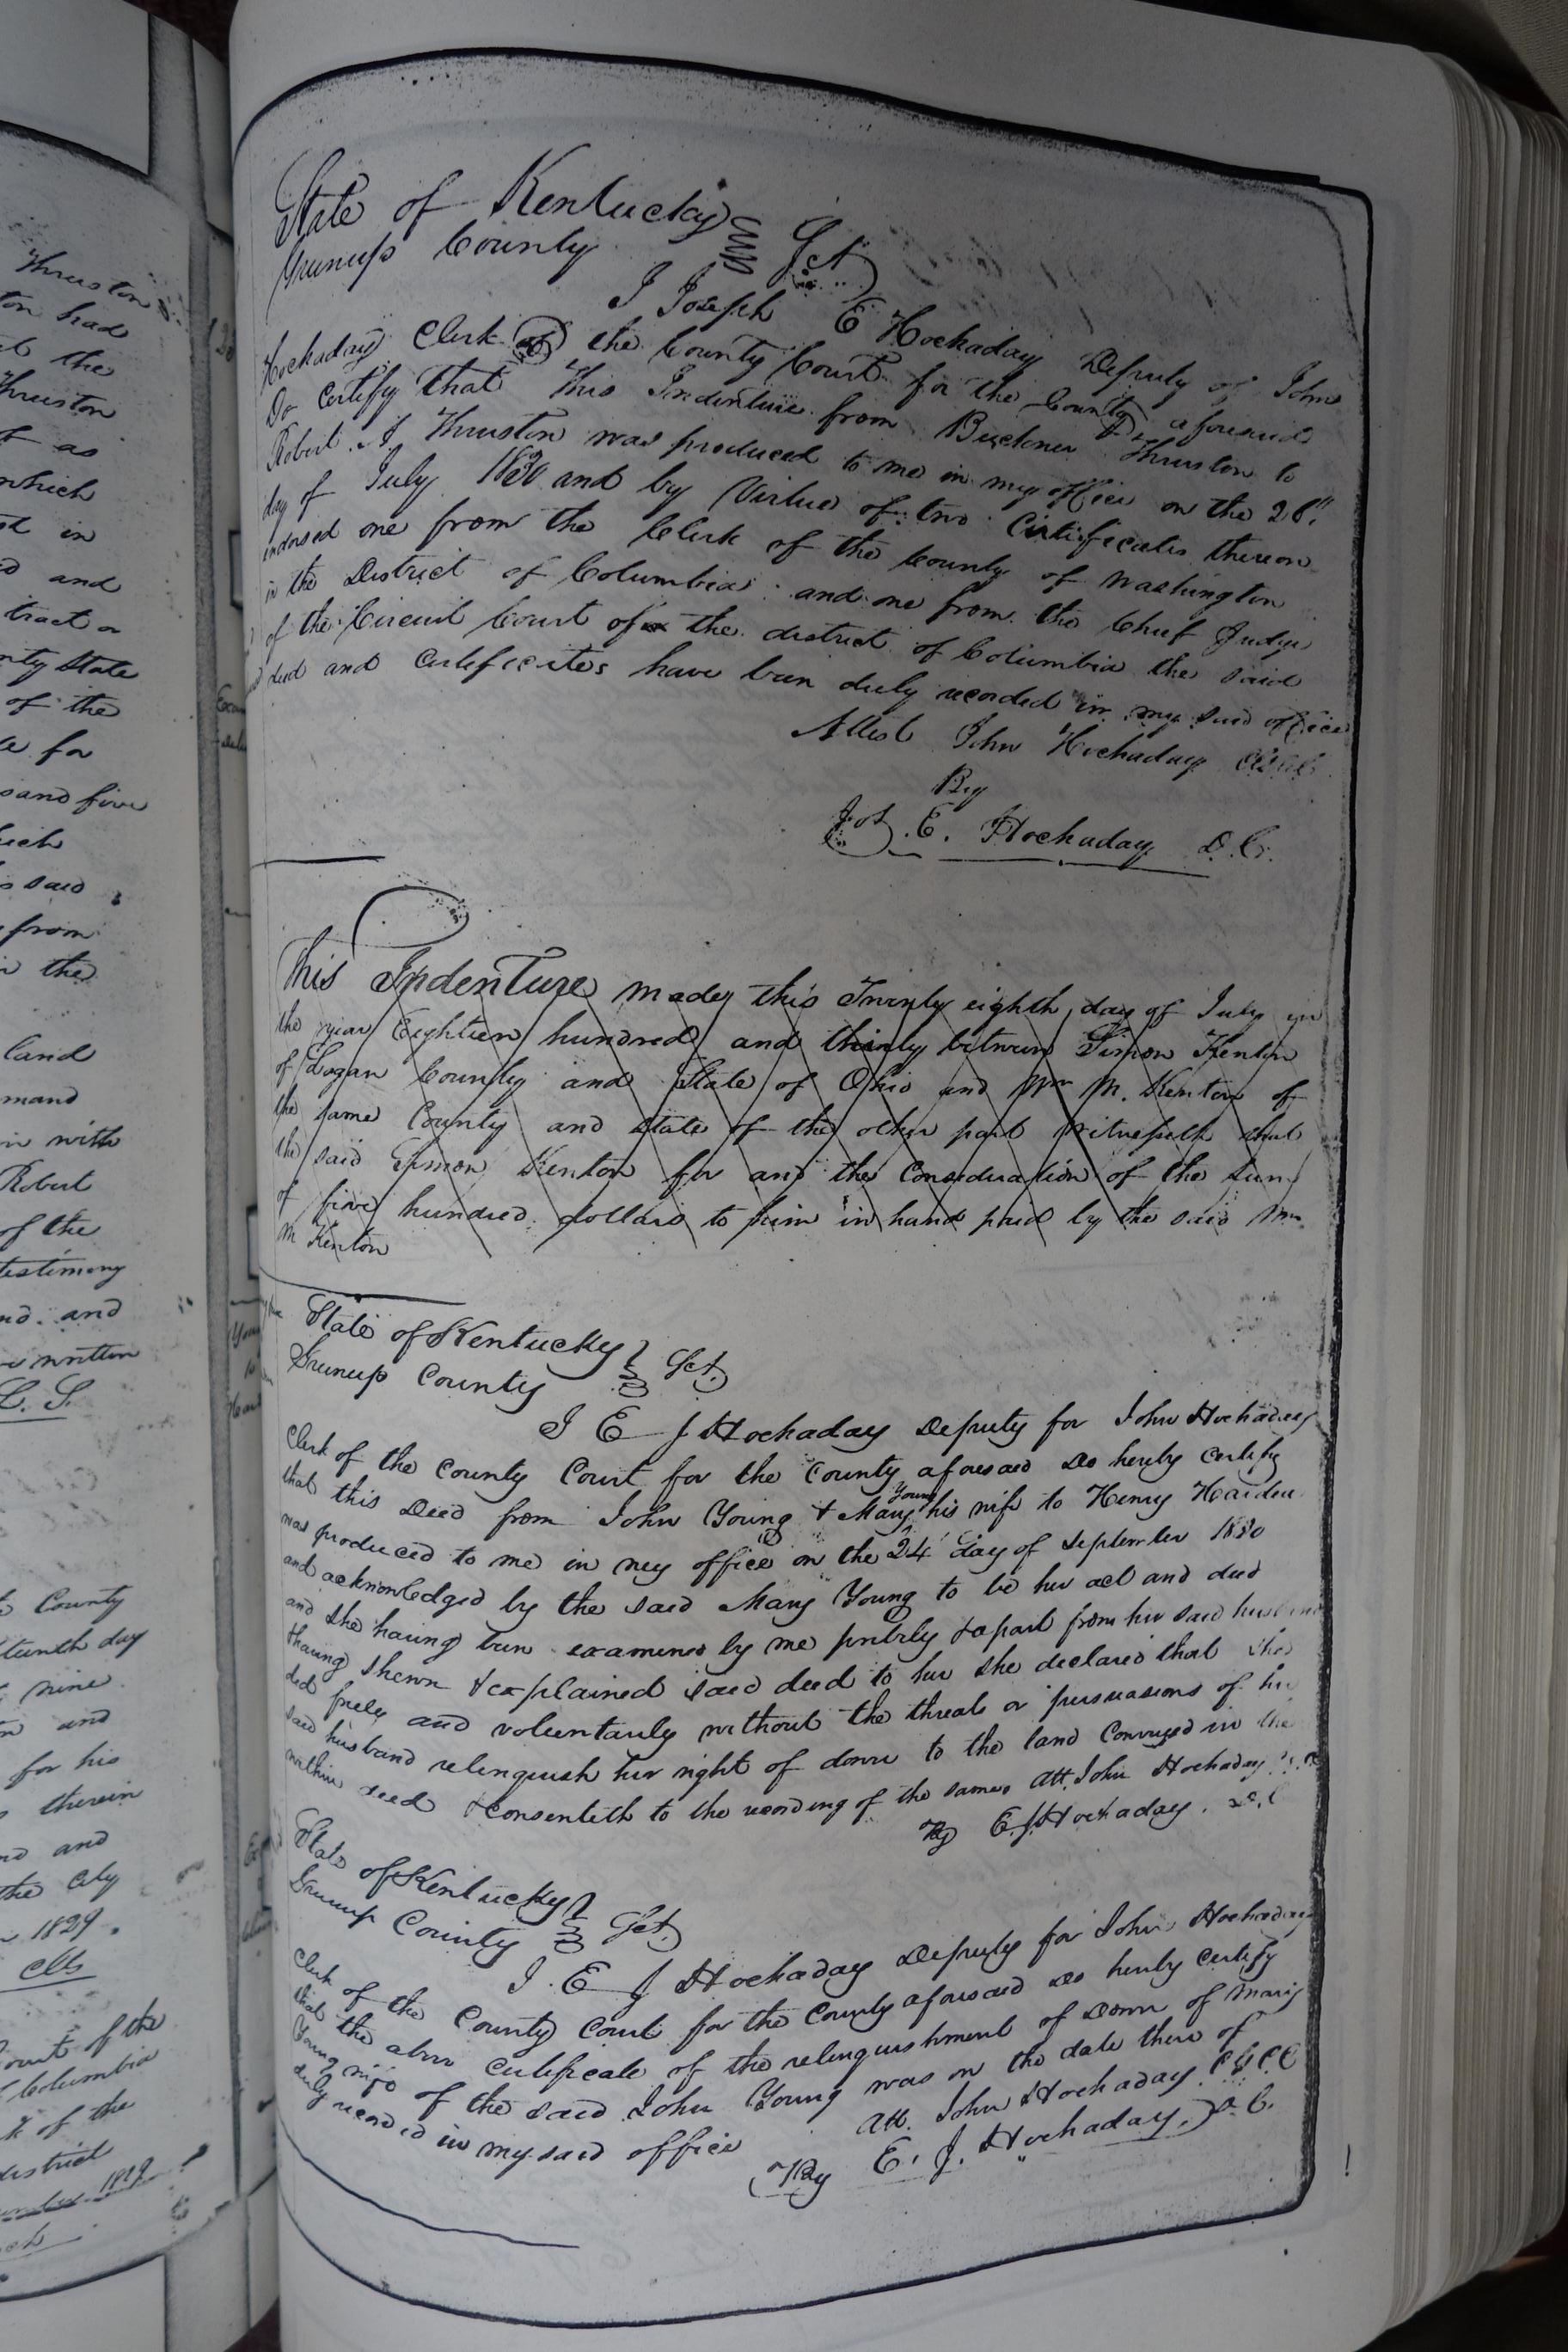 Thruston
ton had
the
Thruston
as
which
in
and
tract or
nty State
of the
for
sand five
said
from
in the
land
mand
with
Robert
of the
testimony
and
written
L. S.
County
day
nine
and
for his
therein
and
the City
1829.
of the
Columbia
of the
district
State of Kentucky
Greenup County Sct
I Joseph E Hockaday Deputy of John
Hockaday Clerk of the County Court for the County aforesaid
Do Certify that this Indenture from Buckner Thruston to
Robert A. Thruston was produced to me in my office on the 28th
day of July 1830 and by Virtue of two Certificates thereon
indorsed one from the Clerk of the County of Washington
in the District of Columbia and one from the Chief Judge
of the Circuit Court of the district of Columbia the said
deed and Certificates have been duly recorded in my said office
Attest John Hockaday
By
Jos. E. Hockaday D.C.
This Indenture made this Twenty eighth day of July in
the year Eighteen hundred and thirty between Simon Kenton
of Logan County and State of Ohio and Wm M. Kenton of
the same County and State of the other part Witnesseth that
the said Simon Kenton for and the Consideration of the sum
of five hundred dollars to him in hand paid by the said Wm
M Kenton
State of Kentucky
Greenup County Sct
I E J Hockaday Deputy for John Hockaday
Clerk of the County Court for the County aforesaid Do hereby Certify
that this Deed from John Young & Mary Young his wife to Henry
was produced to me in my office on the 24 day of September 1830
and acknowledged by the said Mary Young to be her act and deed
and she having been examined by me privily & apart from her said husband
& having shewn & explained said deed to her she declared that she
did freely and voluntarily without the threats or persuasions of her
said husband relinquish her right of dower to the land Conveyed in the
within deed & consenteth to the recording of the same Att. John Hockaday
By E. J. Hockaday. D.C
State of Kentucky
Greenup County Sct
I. E J Hockaday Deputy for John Hockaday
Clerk of the County Court for the County aforesaid Do hereby Certify
that the above Certificate of the relinquishment of Dower of Mary
Young wife of the said John Young was on the date there of
duly record in my said office Att. John Hockaday
By E. J. Hockaday. D.C.